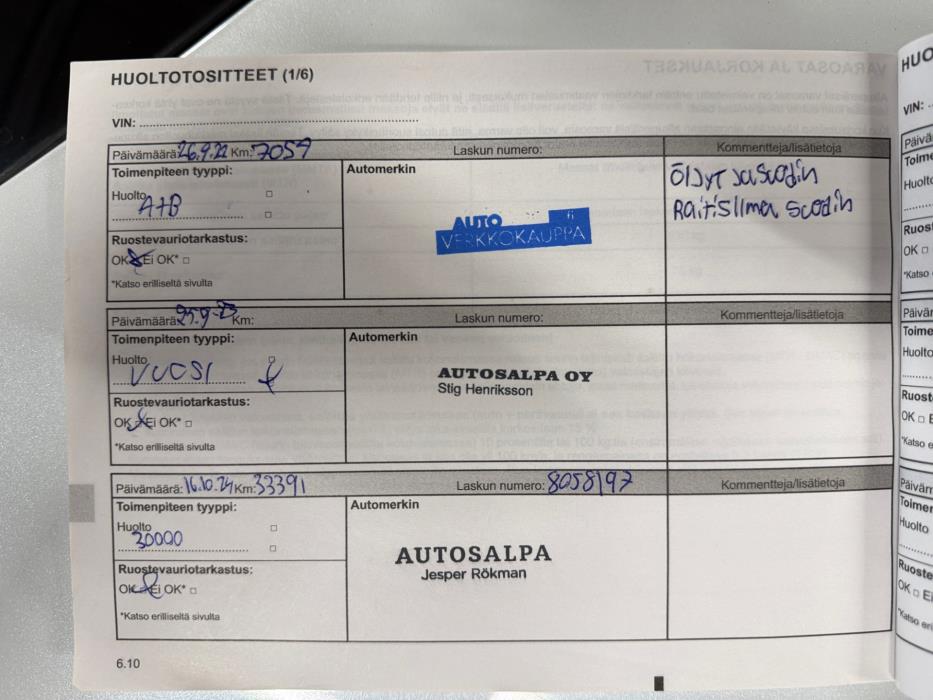 HUOLTOTOSITTEET (1/6)
VIN:
Päivämäärä: 26.9.22 Km: 7059 Laskun numero: Kommentteja/lisätietoja
Toimenpiteen tyyppi: Automerkin
Huolto
A+B
Öljyt ja suodin
Raitisilma suodin
AUTO fi
VERKKOKAUPPA
Ruostevauriotarkastus:
OK Ei OK*
*Katso erilliseltä sivulta
Päivämäärä: 25.9-23 Km: Laskun numero: Kommentteja/lisätietoja
Toimenpiteen tyyppi: Automerkin
Huolto
VUOSI
AUTOSALPA OY
Stig Henriksson
Ruostevauriotarkastus:
OK Ei OK*
*Katso erilliseltä sivulta
Päivämäärä: 16.10.24 Km: 33391 Laskun numero: 8058197 Kommentteja/lisätietoja
Toimenpiteen tyyppi: Automerkin
Huolto
30000
AUTOSALPA
Jesper Rökman
Ruostevauriotarkastus:
OK Ei OK*
*Katso erilliseltä sivulta
6.10
HUO
VIN:
Päivä
Toime
Huolto
Ruos
OK
*Katso
Päivär
Toime
Huolto
Ruos
OK E
*Katso e
Päivärr
Toimer
Huolto
Ruoste
OK Ei
*Katso eri